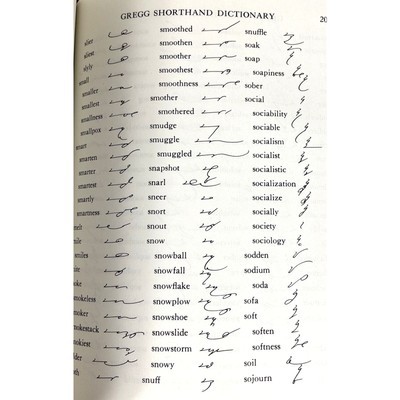 GREGG SHORTHAND DICTIONARY
20
slier
sliest
slyly
small
smaller
smallest
smallness
smallpox
smart
smarten
smarter
smartest
smartly
smartness
melt
mile
miles
ite
oke
okeless
oker
okestack
okiest
lder
oth
smoothed
smoothen
smoother
smoothest
smoothness
smother
smothered
smudge
smuggle
smuggled
snapshot
snarl
sneer
snort
snout
snow
snowball
snowfall
snowflake
snowplow
snowshoe
snowslide
snowstorm
snowy
snuff
snuffle
soak
soap
soapiness
sober
social
sociability
sociable
socialism
socialist
socialistic
socialization
socialize
socially
society
sociology
sodden
sodium
soda
sofa
soft
soften
softness
soil
sojourn